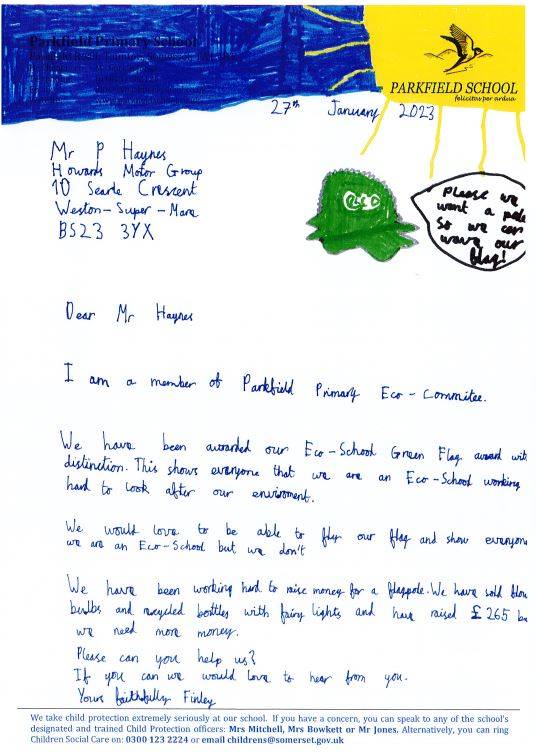 Parkfield Primary School
PARKFIELD SCHOOL
felicitas per ardua
27th January 2023
Mr P Haynes
Howards Motor Group
10 Searle Crescent
Weston-Super-Mare
BS23 3YX
Please we
want a pole
So we can
wave our
flag!
Dear Mr Haynes
I am a member of Parkfield Primary Eco-Commitee.
We have been awarded our Eco-School Green Flag award with
distinction. This shows everyone that we are an Eco-School working
hard to look after our enviroment.
We would love to be able to fly our flag and show everyone
we are an Eco-School but we don't
We have been working hard to raise money for a flagpole. We have sold
bulbs and recycled bottles with fairy lights and have raised £265
we need more money.
Please can you help us?
If you can we would love to hear from you.
Yours faithfully Finley
We take child protection extremely seriously at our school. If you have a concern, you can speak to any of the school's
designated and trained Child Protection officers: Mrs Mitchell, Mrs Bowkett or Mr Jones. Alternatively, you can ring
Children Social Care on: 0300 123 2224 or email childrens@somerset.gov.uk